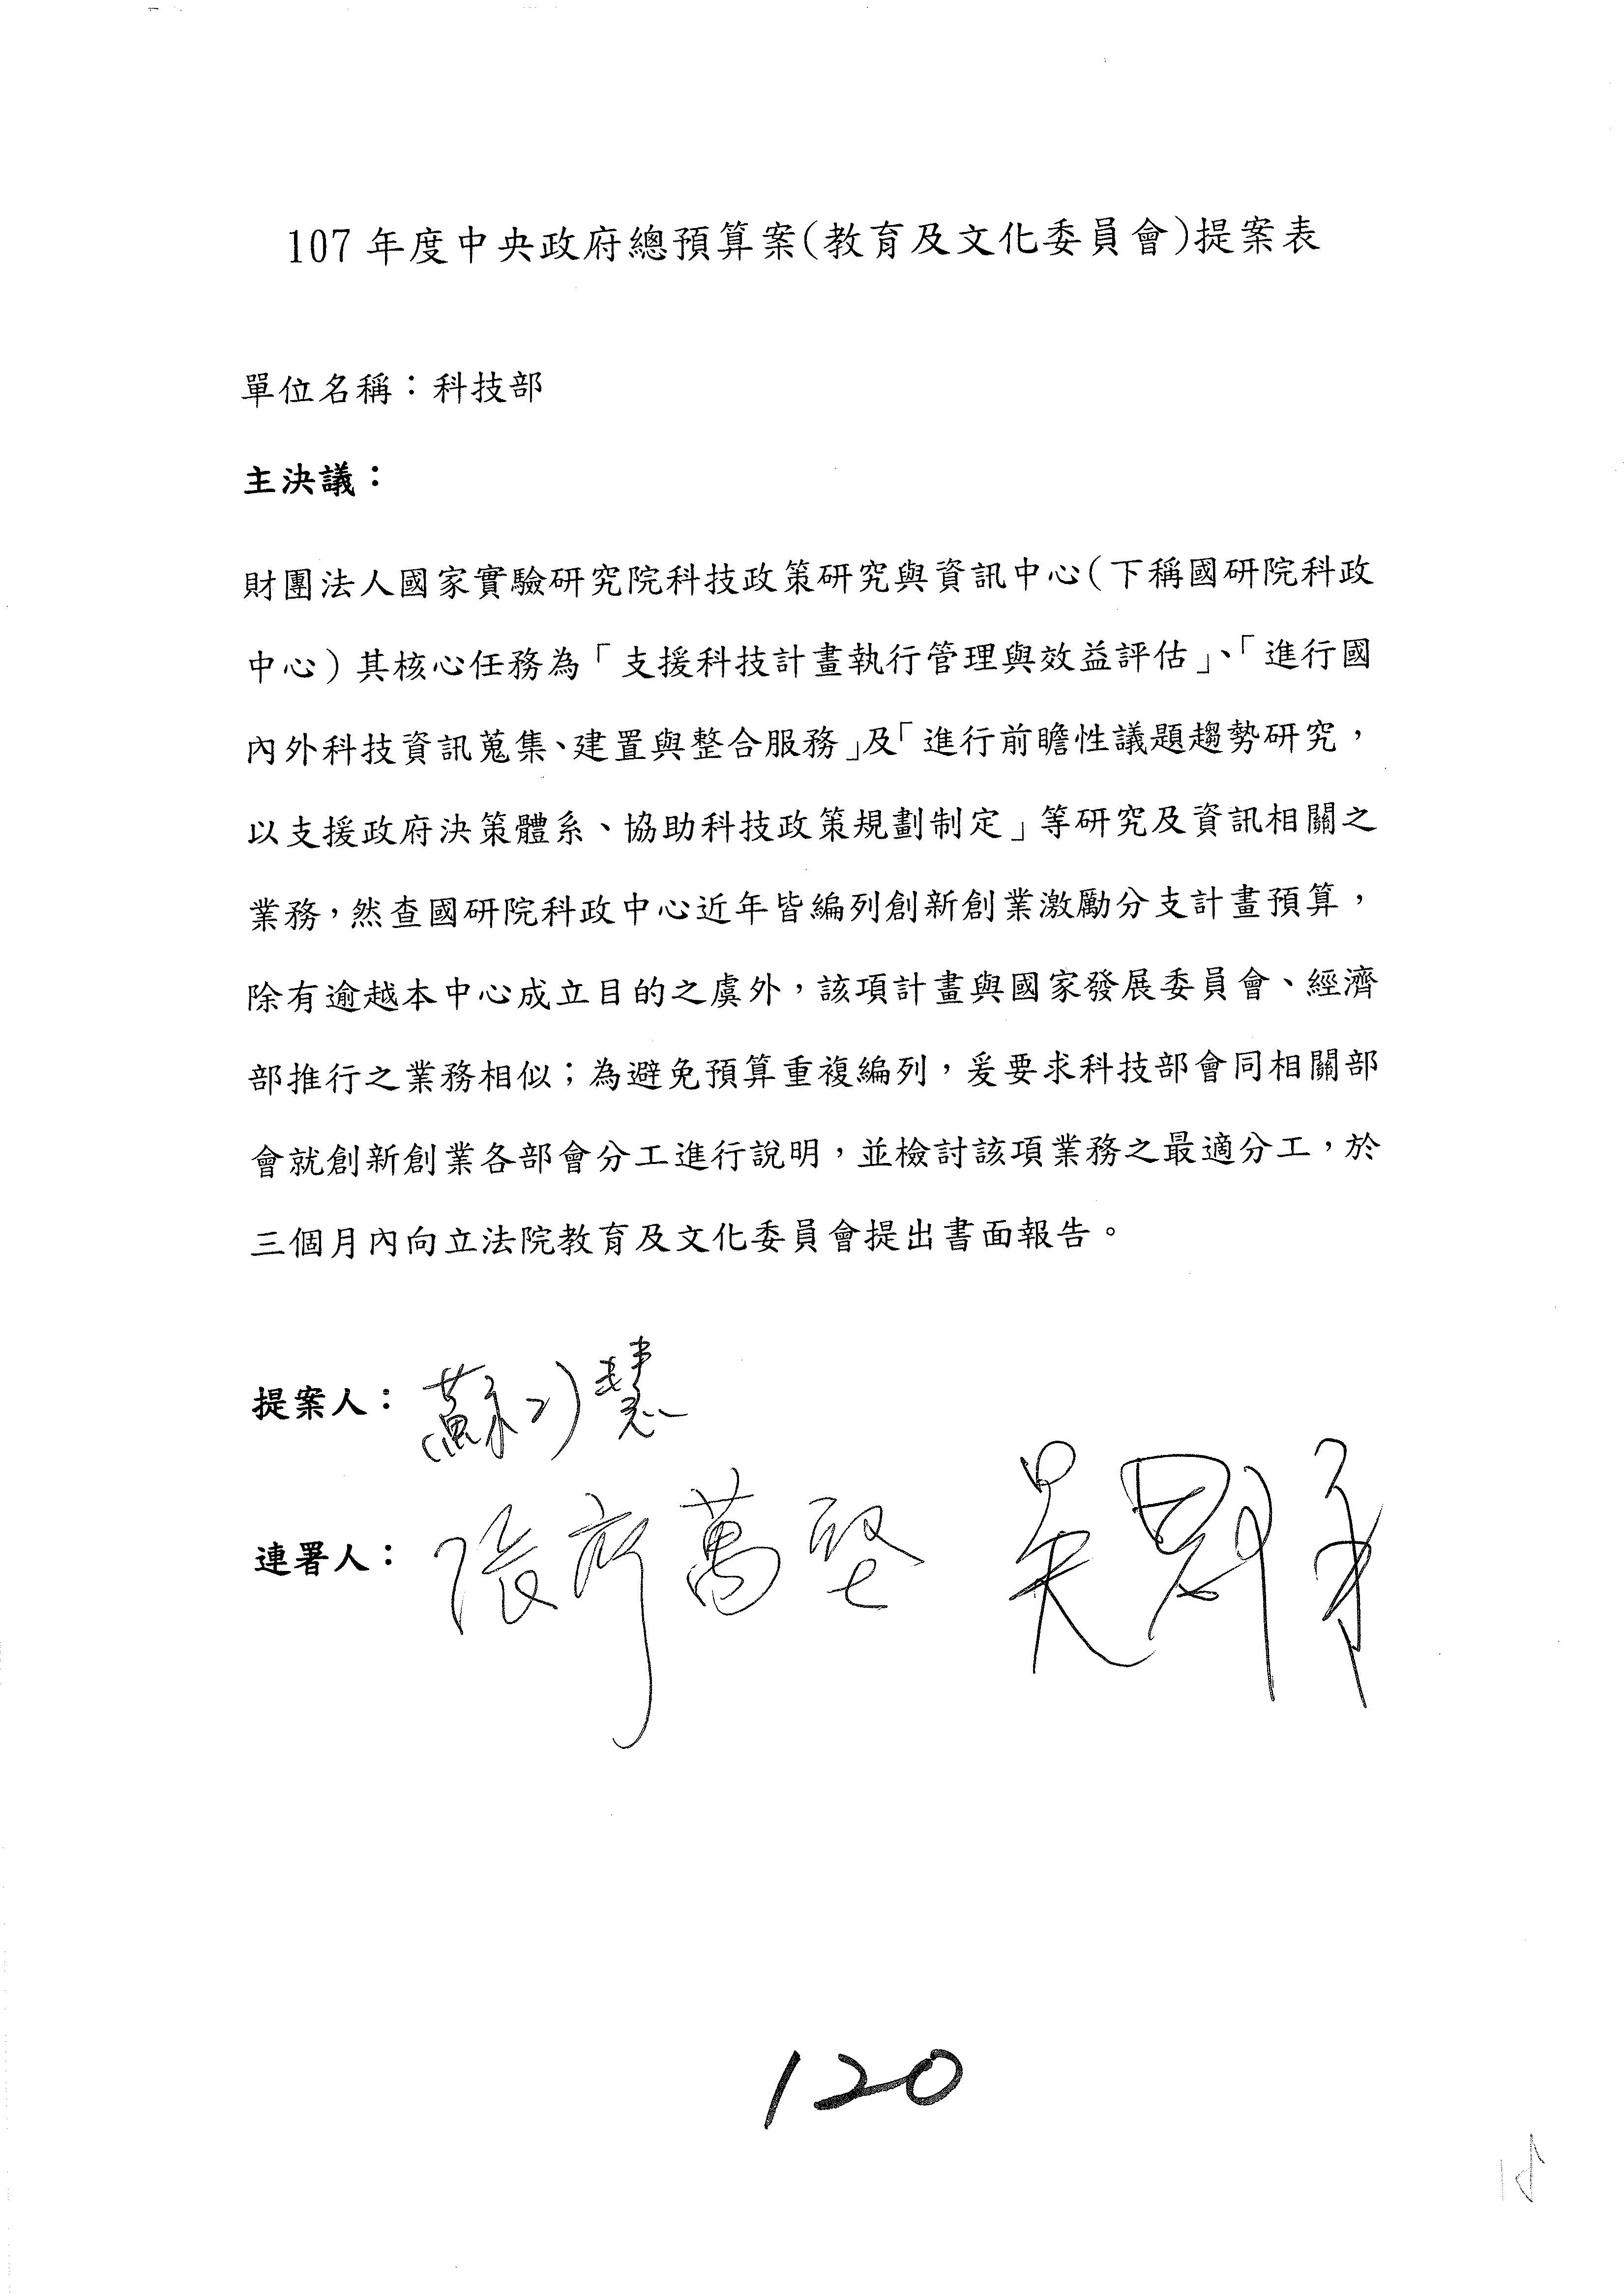 107年度中央政府總預算案(教育及文化委員會)提案表
單位名稱：科技部
主決議：
財團法人國家實驗研究院科技政策研究與資訊中心(下稱國研院科政
中心)其核心任務為「支援科技計畫執行管理與效益評估」、「進行國
內外科技資訊蒐集、建置與整合服務」及「進行前瞻性議題趨勢研究，
以支援政府決策體系、協助科技政策規劃制定」等研究及資訊相關之
業務，然查國研院科政中心近年皆編列創新創業激勵分支計畫預算，
除有逾越本中心成立目的之虞外，該項計畫與國家發展委員會、經濟
部推行之業務相似；為避免預算重複編列，爰要求科技部會同相關部
會就創新創業各部會分工進行說明，並檢討該項業務之最適分工，於
三個月內向立法院教育及文化委員會提出書面報告。
提案人：蘇巧慧
連署人：張廖萬堅 吳思瑤
120